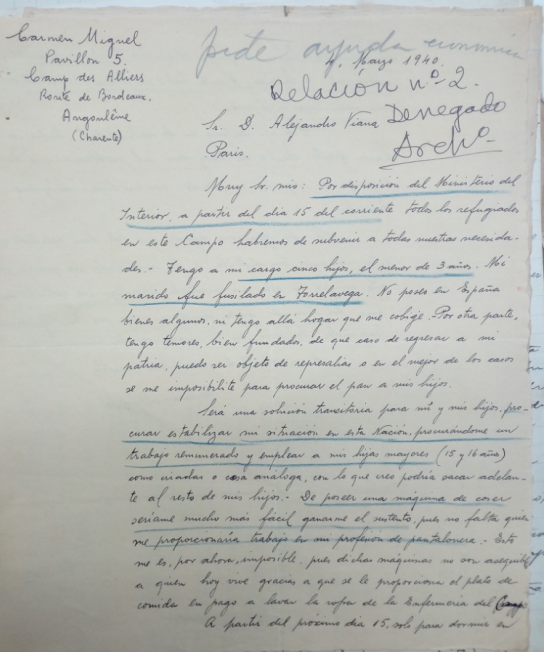 Carmen Miguel
Pavillon 5.
Camp des Alliers
Route de Bordeaux.
Angoulême
(Charente)
pide ayuda económica
4. Marzo 1940.
Relación nº 2.
Denegado
Archº
Sr. D. Alejandro Viana
Paris.
Muy Sr. mio: Por disposición del Ministerio del
Interior, a partir del dia 15 del corriente todos los refugiados
en este Campo habremos de subvenir a todas nuestras necesida-
des.- Tengo a mi cargo cinco hijos, el menor de 3 años. Mi
marido fue fusilado en Torrelavega. No poseo en España
bienes algunos, ni tengo allá hogar que me cobije. Por otra parte,
tengo temores, bien fundados, de que caso de regresar a mi
patria, puedo ser objeto de represalias o en el mejor de los casos
se me imposibilite para procurar el pan a mis hijos.
Será una solución transitoria para mí y mis hijos, pro-
curar estabilizar mi situación en esta Nación, procurándome un
trabajo remunerado y emplear a mis hijas mayores (15 y 16 años)
como criadas o cosa análoga, con lo que creo podría sacar adelan-
te al resto de mis hijos.- De poseer una máquina de coser
seríame mucho más fácil ganarme el sustento, pues no falta quien
me proporcionaría trabajo en mi profesión de pantalonera.- Esto
me es, por ahora, imposible, pues dichas máquinas no son asequibles
a quien hoy vive gracias a que se le proporciona el plato de
comida en pago a lavar la ropa de la Enfermería del Camp
A partir del próximo dia 15, solo para dormir en